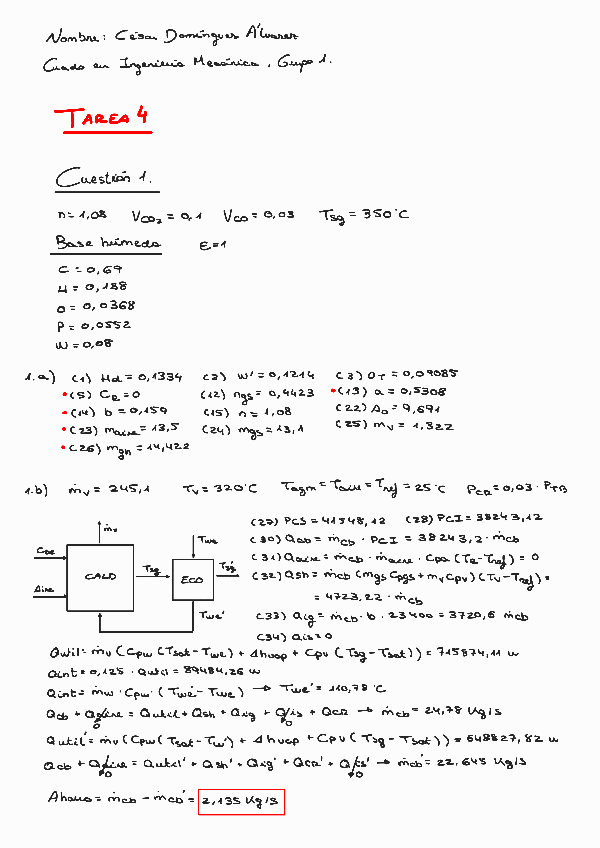 Nombre: César Domínguez Álvarez
Grado en Ingeniería Mecánica, Grupo 1.
TAREA 4
Cuestión 1.
n=1,08 Vco₂ = 0,1 Vco = 0,03 Tsg = 350°C
Base húmeda E=1
C = 0,69
H = 0,188
O = 0,0368
P = 0,0552
W = 0,08
1.a) (1) Hd = 0,1334 (2) W' = 0,1214 (3) OT = 0,09085
(5) CR = 0 (12) ngs = 0,4423 (13) a = 0,5308
(14) b = 0,159 (15) n = 1,08 (22) Ao = 9,691
(23) maire = 13,5 (24) mgs = 13,1 (25) mv = 1,322
(26) mgh = 14,422
1.b) ṁv = 245,1 Tv = 320°C Tagm = Taire = Tref = 25°C PCR = 0,03 · PTB
(27) PCS = 41548,12 (28) PCI = 38243,12
(30) Qcb = ṁcb · PCI = 38243,2 · ṁcb
(31) Qaire = ṁcb · maire · Cpa (Ta - Tref) = 0
(32) Qsh = ṁcb (mgs Cpgs + mv Cpv) (Tv - Tref) =
= 4723,22 · ṁcb
(33) Qig = ṁcb · b · 23400 = 3720,6 ṁcb
(34) Qis = 0
ṁv
Twe
CDE
Aire
CALD
Tsg
ECO
Tsg'
Twe'
Qutil = ṁv (Cpw (Tsat - Twe) + Δhvap + Cpv (Tsg - Tsat)) = 715874,11 w
Qint = 0,125 · Qutil = 89484,26 w
Qint = ṁw · Cpw · (Twe' - Twe) → Twe' = 110,78 °C
Qcb + Qaire = Qutil + Qsh + Qig + Qis + QCR → ṁcb = 24,78 Kg/s
0 0
Qutil' = ṁv (Cpw (Tsat - Tw') + Δhvap + Cpv (Tsg - Tsat)) = 648827,82 w
Qcb + Qaire = Qutil' + Qsh' + Qig' + Qcr' + Qis' → ṁcb' = 22,645 Kg/s
0 0
Ahorro = ṁcb - ṁcb' = 2,135 Kg/s